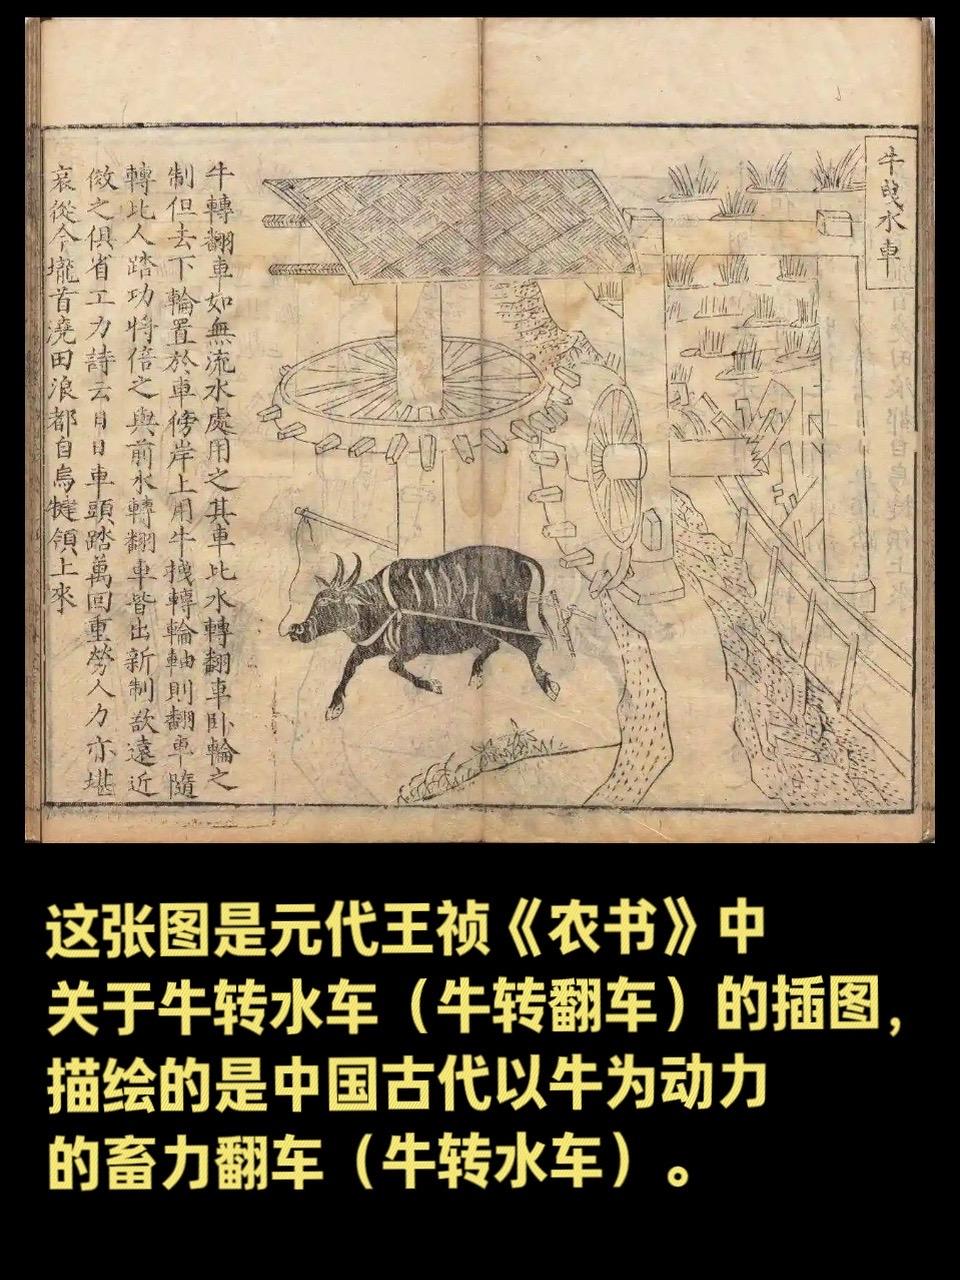 牛曳水車
牛轉翻車如無流水處用之其車比水轉翻車卧輪之
制但去下輪置於車傍岸上用牛拽轉輪軸則翻車隨
轉比人踏功將倍之與前水轉翻車皆出新制故遠近
傚之俱省工力詩云日日車頭踏萬回重勞人力亦堪
哀從今壠首澆田浪都自烏犍領上來
这张图是元代王祯《农书》中
关于牛转水车（牛转翻车）的插图，
描绘的是中国古代以牛为动力
的畜力翻车（牛转水车）。